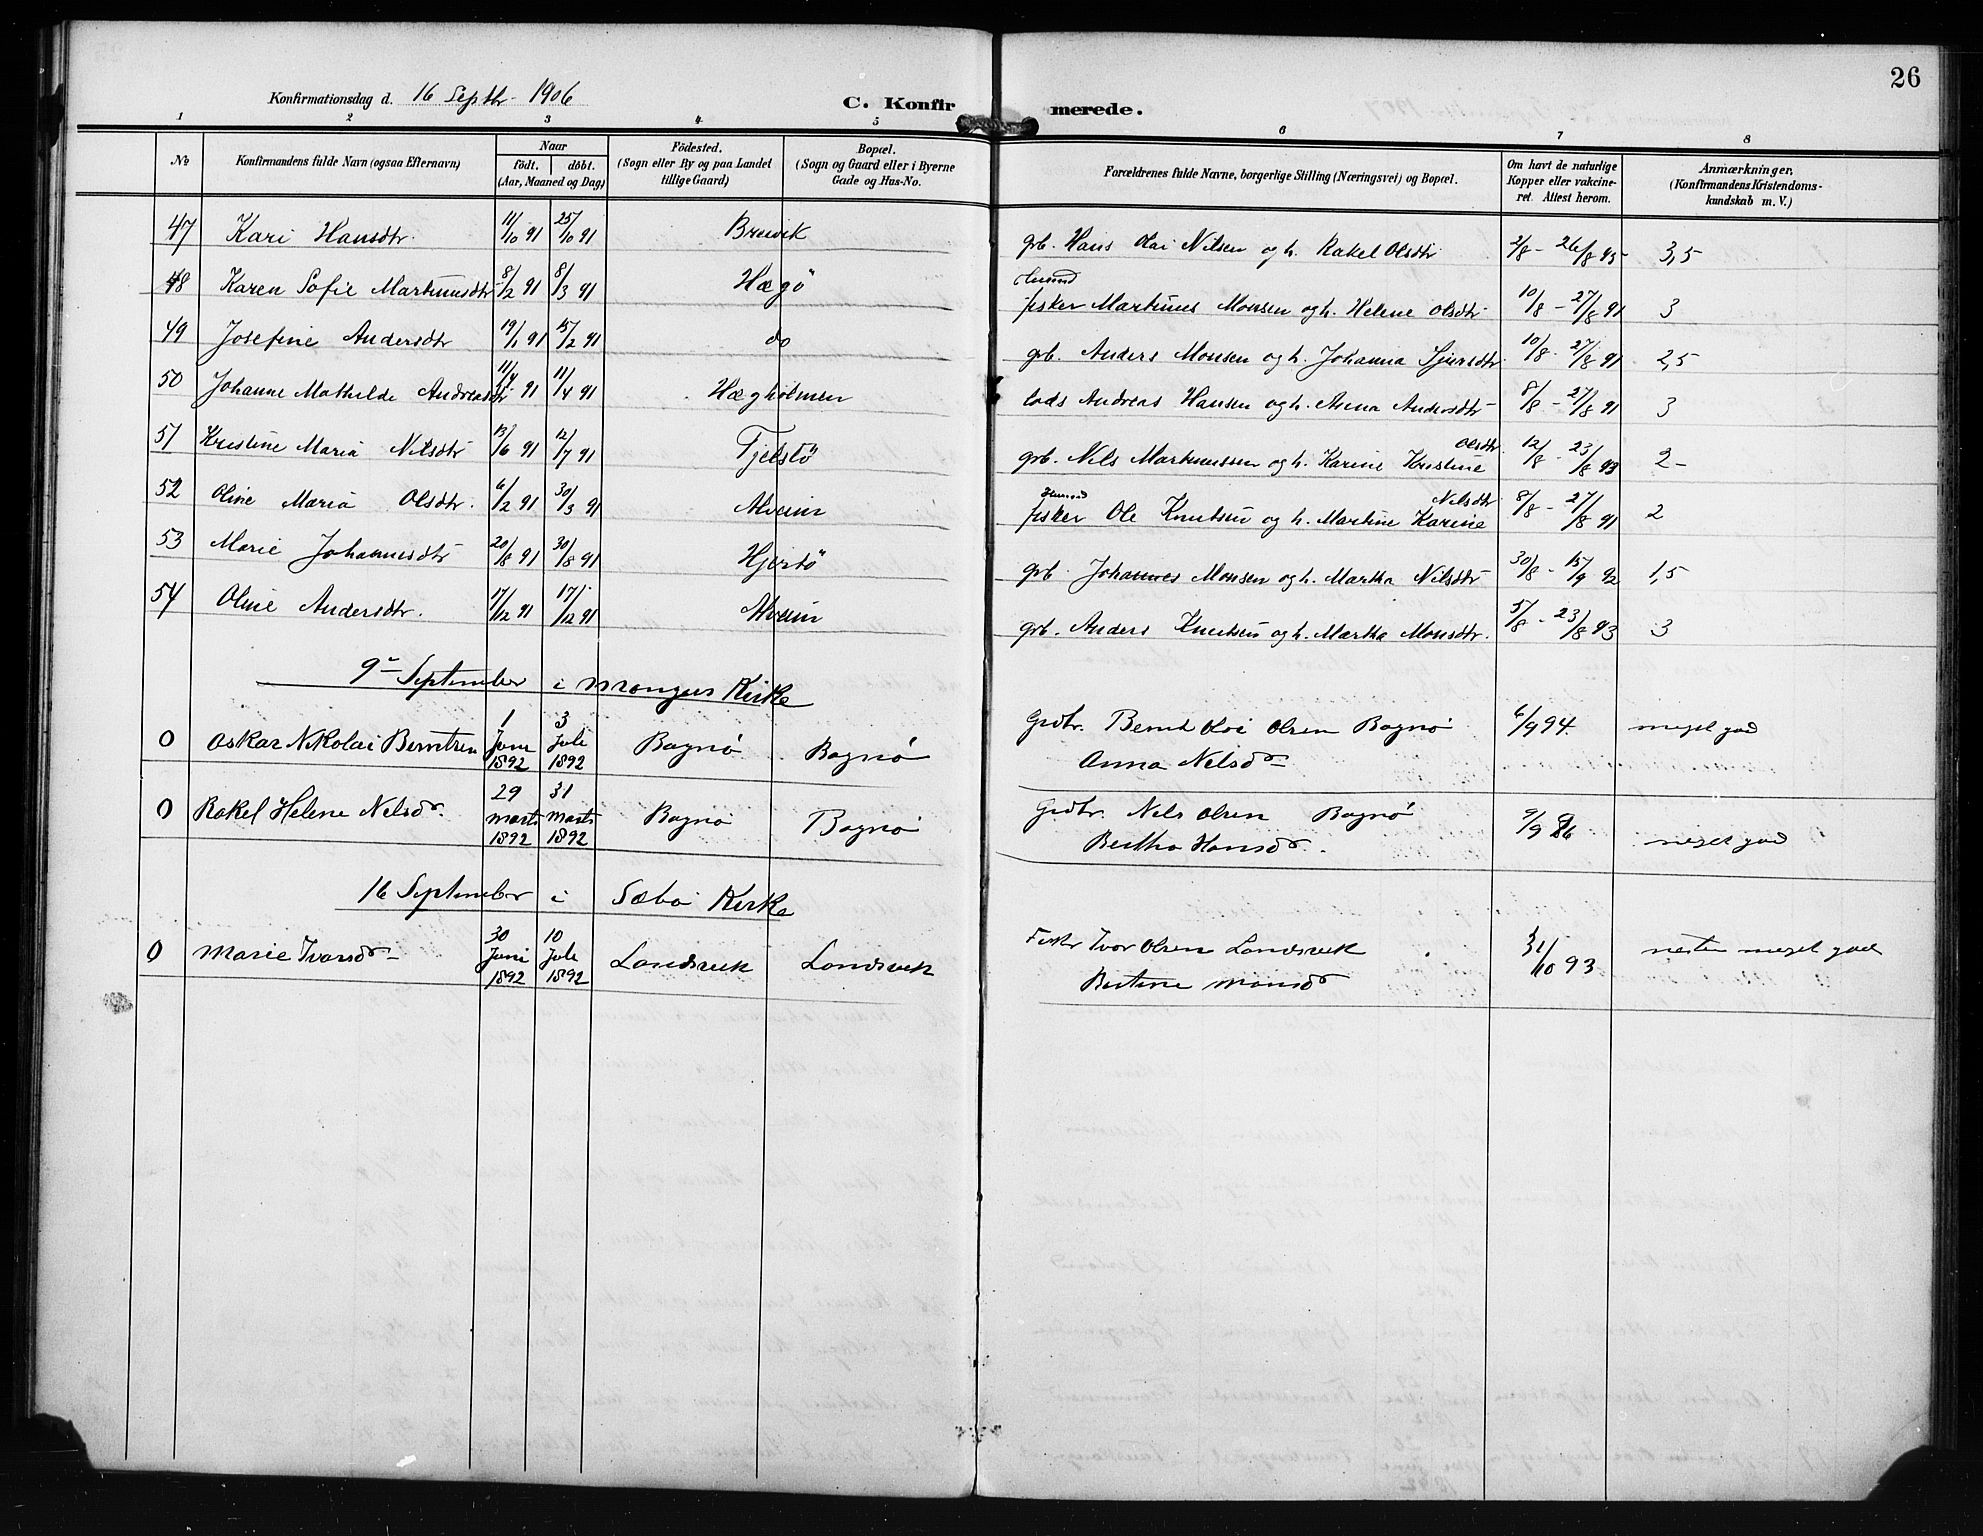 26
Konfirmationsdag d. 16 Septbr. 1906 C. Konfirmerede.
1 2 3 4 5 6 7 8
No Konfirmandens fulde Navn (ogsaa Efternavn) Naar født. døbt. (Aar, Maaned og Dag) Fødested. (Sogn eller By og paa Landet tillige Gaard) Bopæl. (Sogn og Gaard eller i Byerne Gade og Hus-No. Forældrenes fulde Navne, borgerlige Stilling (Næringsvei) og Bopæl. Om havt de naturlige Kopper eller vakcineret. Attest herom. Anmærkninger, (Konfirmandens Kristendomskundskab m. V.)
47 Kari Hansdtr. 11/10 91 25/10 91 Breivik grb. Hans Olai Nilsen og h. Rakel Olsdtr 2/8 - 26/8 95 3,5
48 Karen Sofie Markusdtr 8/2 91 8/3 91 Hægö
fisker Markus Monsen og h. Helene Olsdtr 10/8 - 27/8 91 3
49 Josefine Andersdtr 19/1 91 15/2 91 do grb. Anders Monsen og h. Johanna Sjursdtr. 10/8 - 27/8 91 2,5
50 Johanne Mathilde Andreasdtr 11/4 91 11/4 91 Hægholmen lods Andreas Hansen og h. Anna Andersdtr 8/8 - 27/8 91 3
51 Kristine Maria Nilsdtr 13/6 91 12/7 91 Fjelstö grb. Nils Markussen og h. Karine Kristine Olsdtr 12/8 - 23/8 93 2-
52 Oline Maria Olsdtr. 6/2 91 30/3 91 Alveim fisker Ole Knutsen og h. Martine Karine Nilsdtr 8/8 - 27/8 91 2
53 Marie Johannesdtr 20/8 91 30/8 91 Hjertö grb. Johannes Monsen og h. Martha Nilsdtr 30/8 - 15/9 92 1,5
54 Oline Andersdtr. 17/12 91 17/12 91 Alveim grb. Anders Knutsen og h. Martha Monsdtr. 5/8 - 23/8 93 3
9 September i Mangers Kirke
0 Oskar Nikolai Berntsen 1 Juni 1892 3 Juli 1892 Bognø Bognø Grdbr. Bernt Olai Olsen Bognø 6/9 94. meget god
Anna Nelsd
0 Rakel Helene Nelsd. 29 Marts 1892 31 Marts 1892 Bognø Bognø Grdbr. Nels Olsen Bognø 9/9 96 meget god
Bertha Hansd.
16 September i Sæbø Kirke
0 Marie Ivarsd 30 Juni 1892 10 Juli 1892 Landsvik Landsvik Fiskr Ivar Olsen Landsvik 31/10 93 nesten meget god
Bertine Monsd